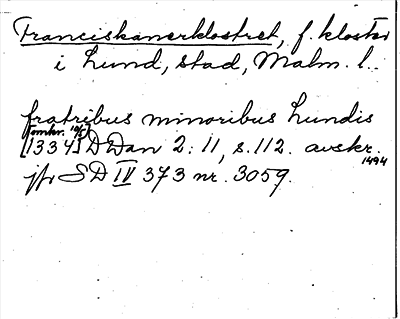 Franciskanerklostret, f. kloster
i Lund, stad, Malm. l.
fratribus minoribus Lundis
[1334] DDan 2: 11, s. 112. avskr.
1494
jfr SD IV 373 nr. 3059.